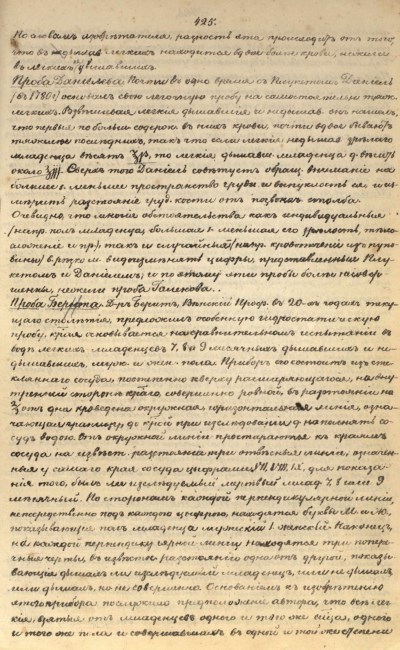 425.
По словам изобретателя, разность эта происходит от того,
что в дышавших легких находится вдвое более крови, нежели
в легких недышавших.
Проба Даниеля. Почти в одно время с Плукетом, Даниель
(в 1780 г.) основал свою легочную пробу на самостоятельной тяжести
легких. Взвешивая легкия дышавшия и недышавшия, он нашел,
что первые по больш. содерж. в них крови, почти вдвое
тяжелее последних, так что если легкия недышав. зрелого
младенца весят, то легкия дышавш. младенца д. весить
около. Сверх того Даниель советует обращ. внимание на
большее и меньшее пространство груди и выпуклость ея и
измерить разстояние груд. кости от позвон. столба.
Очевидно, что многие обстоятельства как индивидуальныя
(напр. пол младенца, большая и меньшая его зрелость,
положение и пр.) так и случайныя (напр. кровотечение из пуповины)
могут видоизменять цифры, представленныя Плукетом
и Даниелем, и по этому эти пробы более
нежели проба Галенова.
Проба Бернта. Д-р Бернт, Венский Проф. в 20-х годах текущего
столетия, предложил особенную гидростатическую
пробу, которая основывается на сравнительном испытании в
воде легких младенцев 7, 8 и 9 месячных дышавших и недышавших,
муж. и жен. пола. Прибор его состоит из стекляннаго
сосуда постепенно кверху расширяющагося, на внутренней
стороне котораго, совершенно ровной, в разстоянии
от дна проведена окружная горизонтальная линия, означающая
границу, до коей при изследовании д. наполнять сосуд
водою. От окружной линии простираются к краям
сосуда на известн. разстоянии три отвесныя линии, означенныя
у самаго края сосуда цифрами VII, VIII, IX, для показания
того, было ли изследуемый мертвый млад. 7, 8 или 9
месячный. По сторонам каждой перпендикулярной линии,
непосредственно под каждою цифрою, находятся буквы М. и Ж.,
показывающия пол младенца мужеский и женский. Наконец,
на каждой перпендикулярной линии находятся три поперечныя
черты, в известн. разстоянии одна от другой, показывающия
дышал ли изследуемый младенец, или не дышал,
или дышал, но не совершенно. Основанием к изобретению
этого прибора послужило предположение автора, что все легкия,
взятыя от младенцев одного и того же пола, одного
и того же тела и совершавших в одной и той же степени